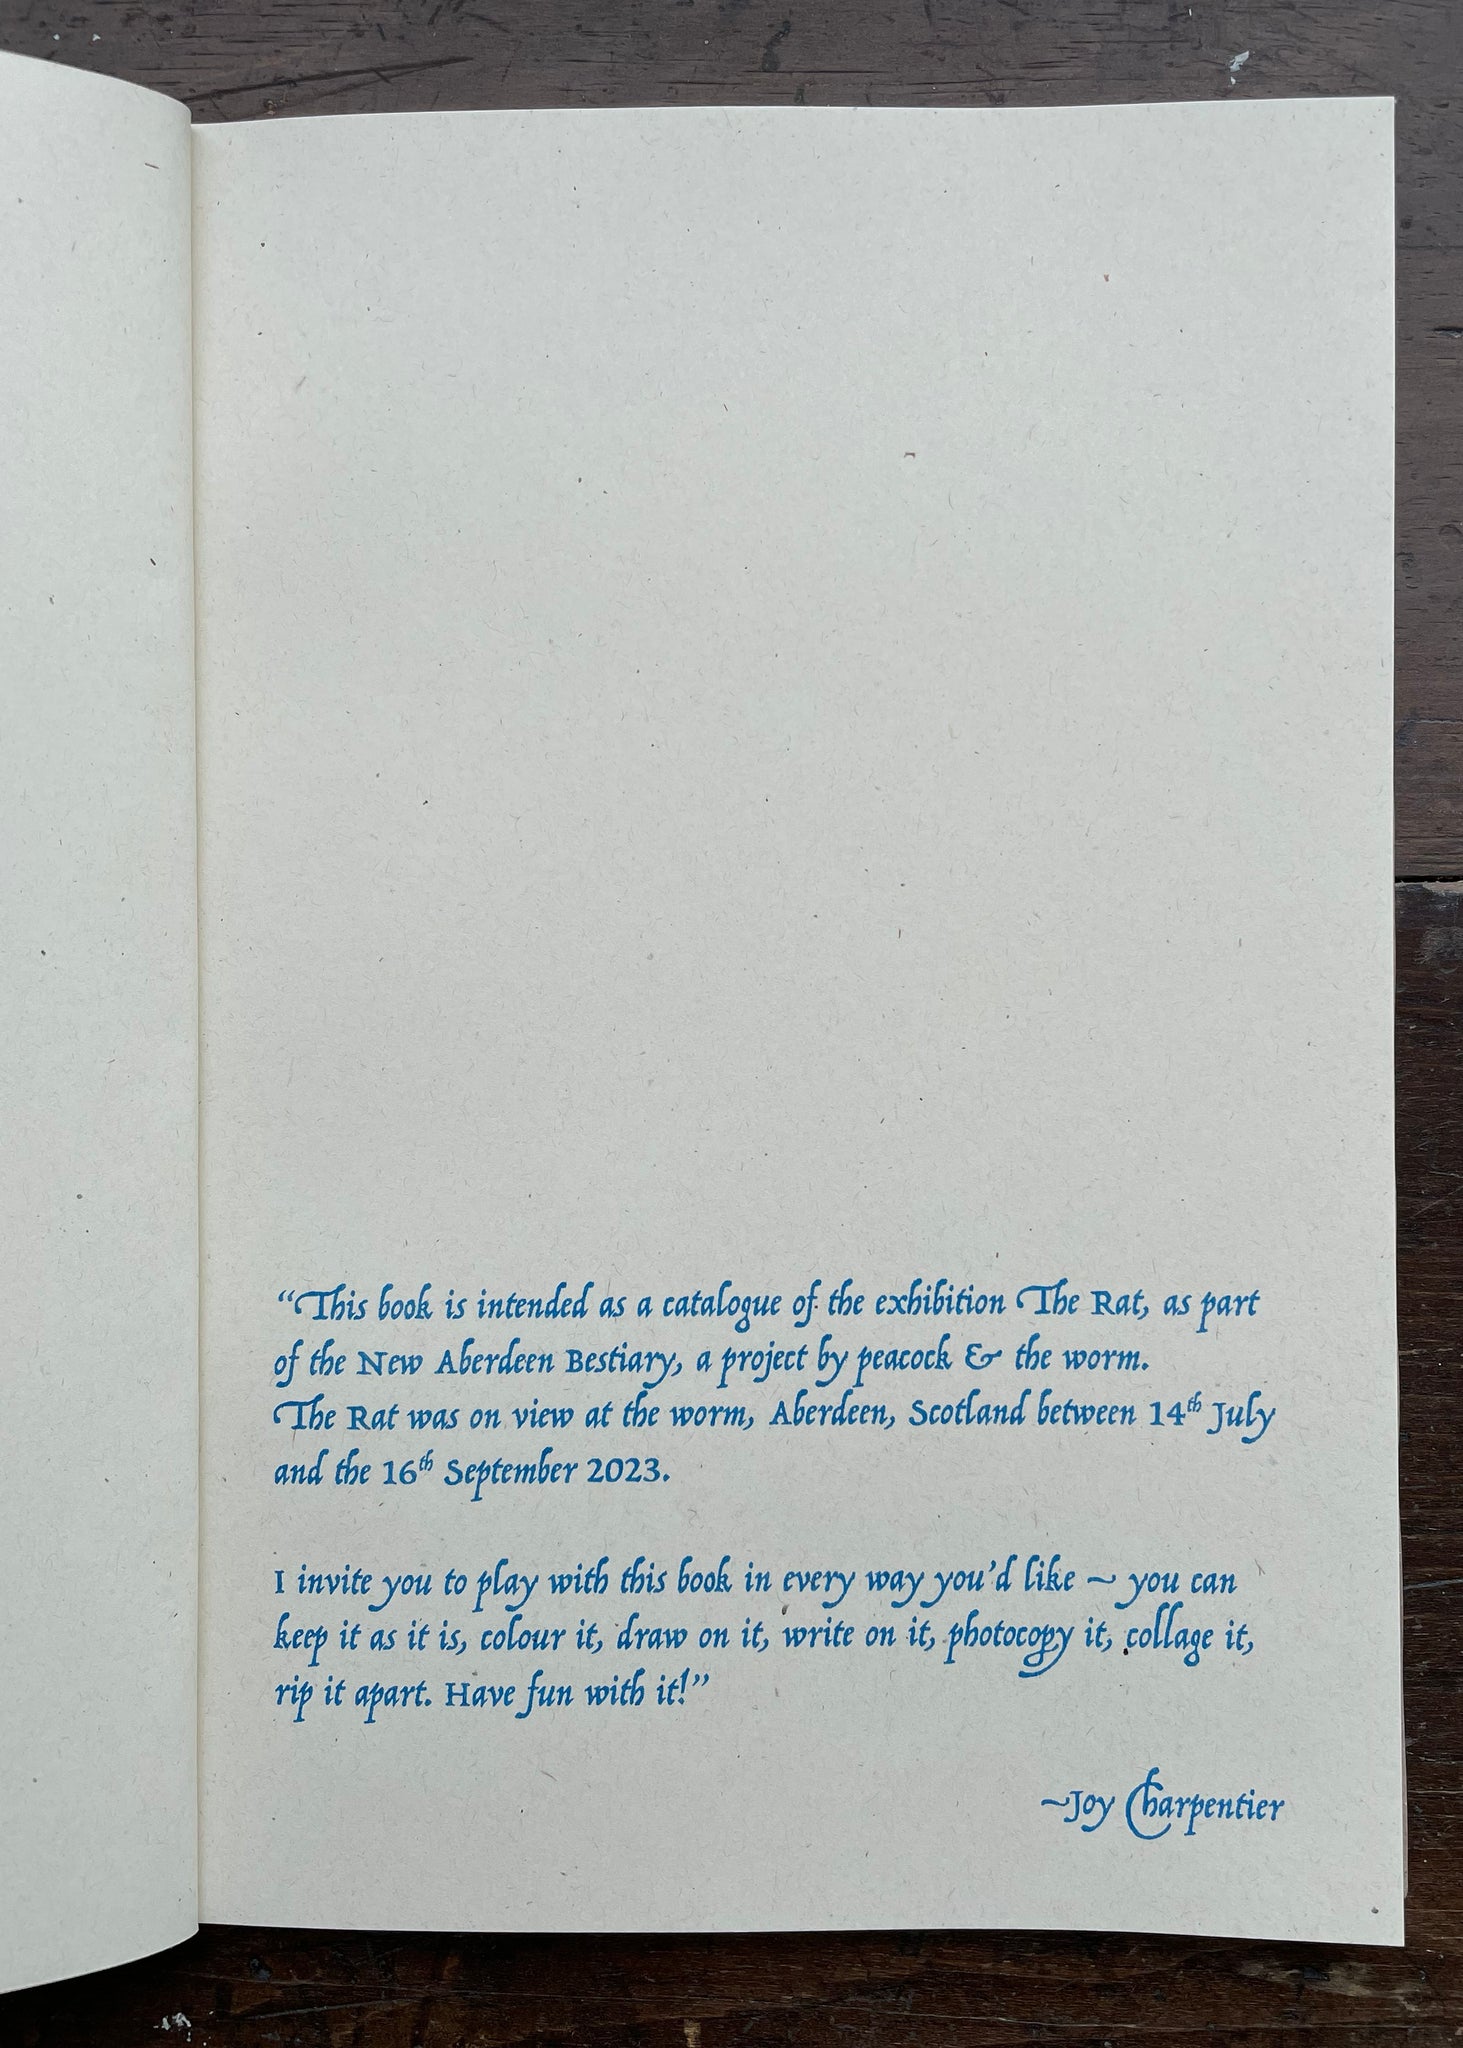 “This book is intended as a catalogue of the exhibition The Rat, as part
of the New Aberdeen Bestiary, a project by peacock & the worm.
The Rat was on view at the worm, Aberdeen, Scotland between 14th July
and the 16th September 2023.
I invite you to play with this book in every way you’d like ~ you can
keep it as it is, colour it, draw on it, write on it, photocopy it, collage it,
rip it apart. Have fun with it!”
~Joy Charpentier